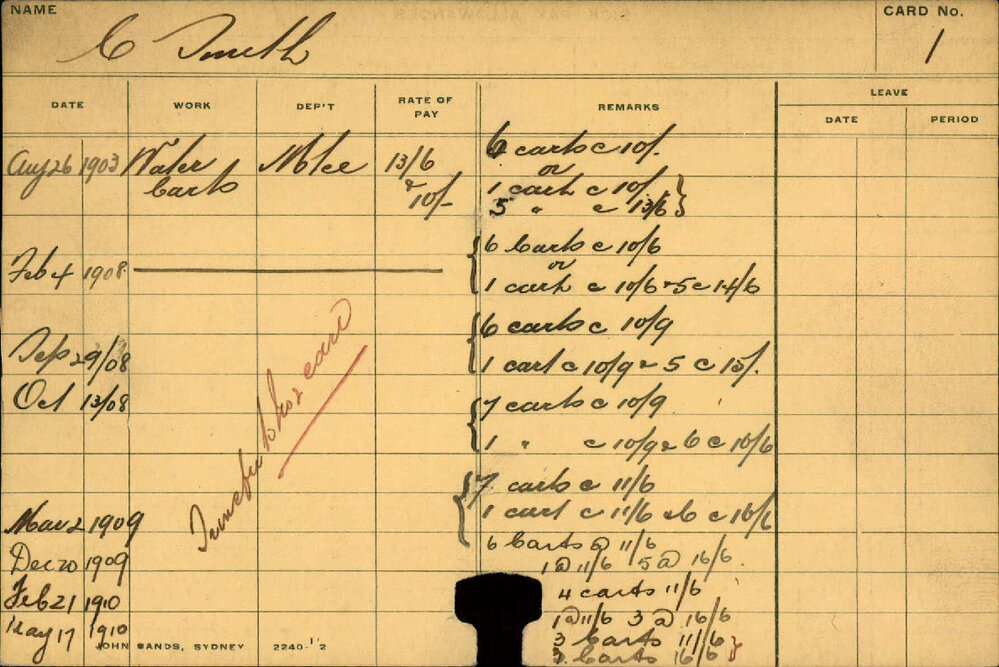 NAME
CARD No.
C Smith
1
DATE WORK DEP'T RATE OF PAY REMARKS LEAVE
DATE PERIOD
Aug 26 1903 Water Carts 13/6 & 10/- 6 carts c 10/.
or
1 cart c 10/.
5 " c 13/6
Feb 4 1908 6 Carts c 10/6
or
1 cart c 10/6 & 5 c 14/6
6 carts c 10/9
Sep 29/08 1 cart c 10/9 & 5 c 15/.
Oct 13/08 7 carts c 10/9
1 " c 10/9 & 6 c 16/6
7 carts c 11/6
Mar 2 1909 1 cart c 11/6 & 6 c 16/6
Dec 20 1909 6 Carts @ 11/6
1 @ 11/6 5 @ 16/6.
Feb 21 1910 4 carts 11/6
1 @ 11/6 3 @ 16/6
May 17 1910 3 Carts 11/6
3 Carts 16/6
card
JOHN SANDS, SYDNEY 2240-1'2